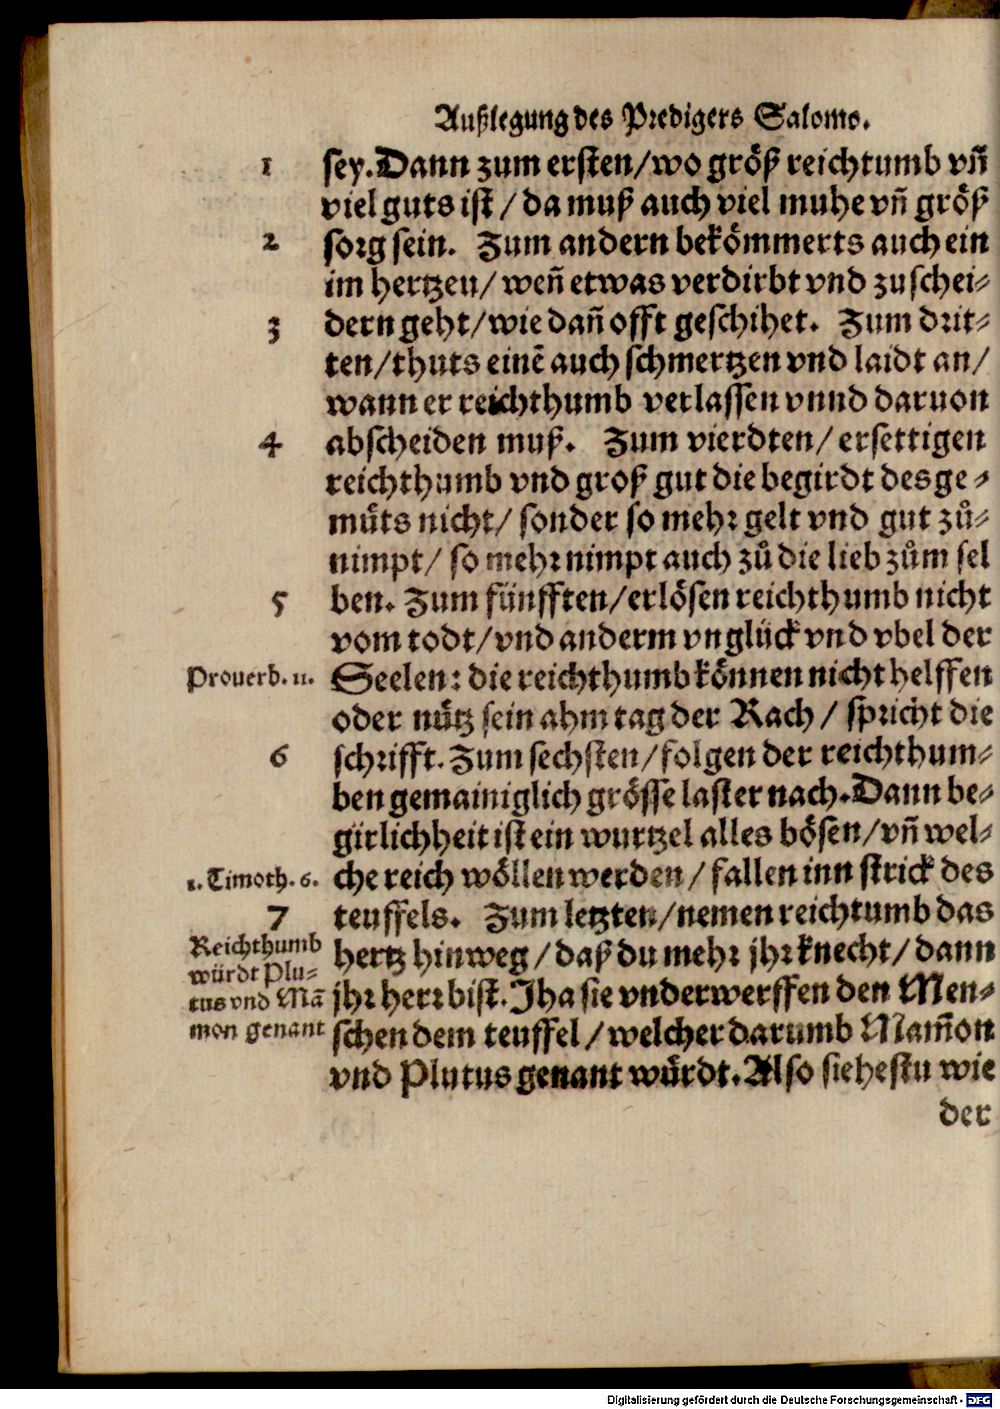 Außlegung des Predigers Salomo.
1 sey. Dann zum ersten/wo größ reichtumb vñ
viel guts ist / da muß auch viel muhe vñ größ
2 sorg sein. Zum andern bekömmerts auch ein
im hertzen/ weñ etwas verdirbt vnd zu schei⸗
3 dern geht/wie dañ offt geschihet. Zum drit⸗
ten/thuts einē auch schmertzen vnd laidt an/
wann er reichthumb verlassen vnnd daruon
4 abscheiden muß. Zum vierdten/ ersettigen
reichthumb vnd groß gut die begirdt des ge⸗
muͤts nicht/ sonder so mehr gelt vnd gut zů⸗
nimpt/ so mehr nimpt auch zů die lieb zům sel
5 ben. Zum fünfften/erlösen reichthumb nicht
vom todt/vnd anderm vnglück vnd vbel der
Prouerb. 11. Seelen: die reichthumb können nicht helffen
oder nuͤtz sein ahm tag der Rach / spricht die
6 schrifft. Zum sechsten/folgen der reichthum⸗
ben gemainiglich grösse laster nach. Dann be⸗
girlichheit ist ein wurtzel alles bösen/vñ wel⸗
1. Timoth. 6. che reich wöllen werden / fallen inn strick des
7 teuffels. Zum letzten/nemen reichtumb das
Reichthumb hertz hinweg / daß du mehr jhr knecht/ dann
würdt Plu⸗
tus vnd Mā jhr herr bist. Jha sie vnderwerffen den Men⸗
mon genant schen dem teuffel / welcher darumb Mam̃on
vnd Plutus genant wuͤrdt. Also siehestu wie
der
Digitalisierung gefördert durch die Deutsche Forschungsgemeinschaft - DFG